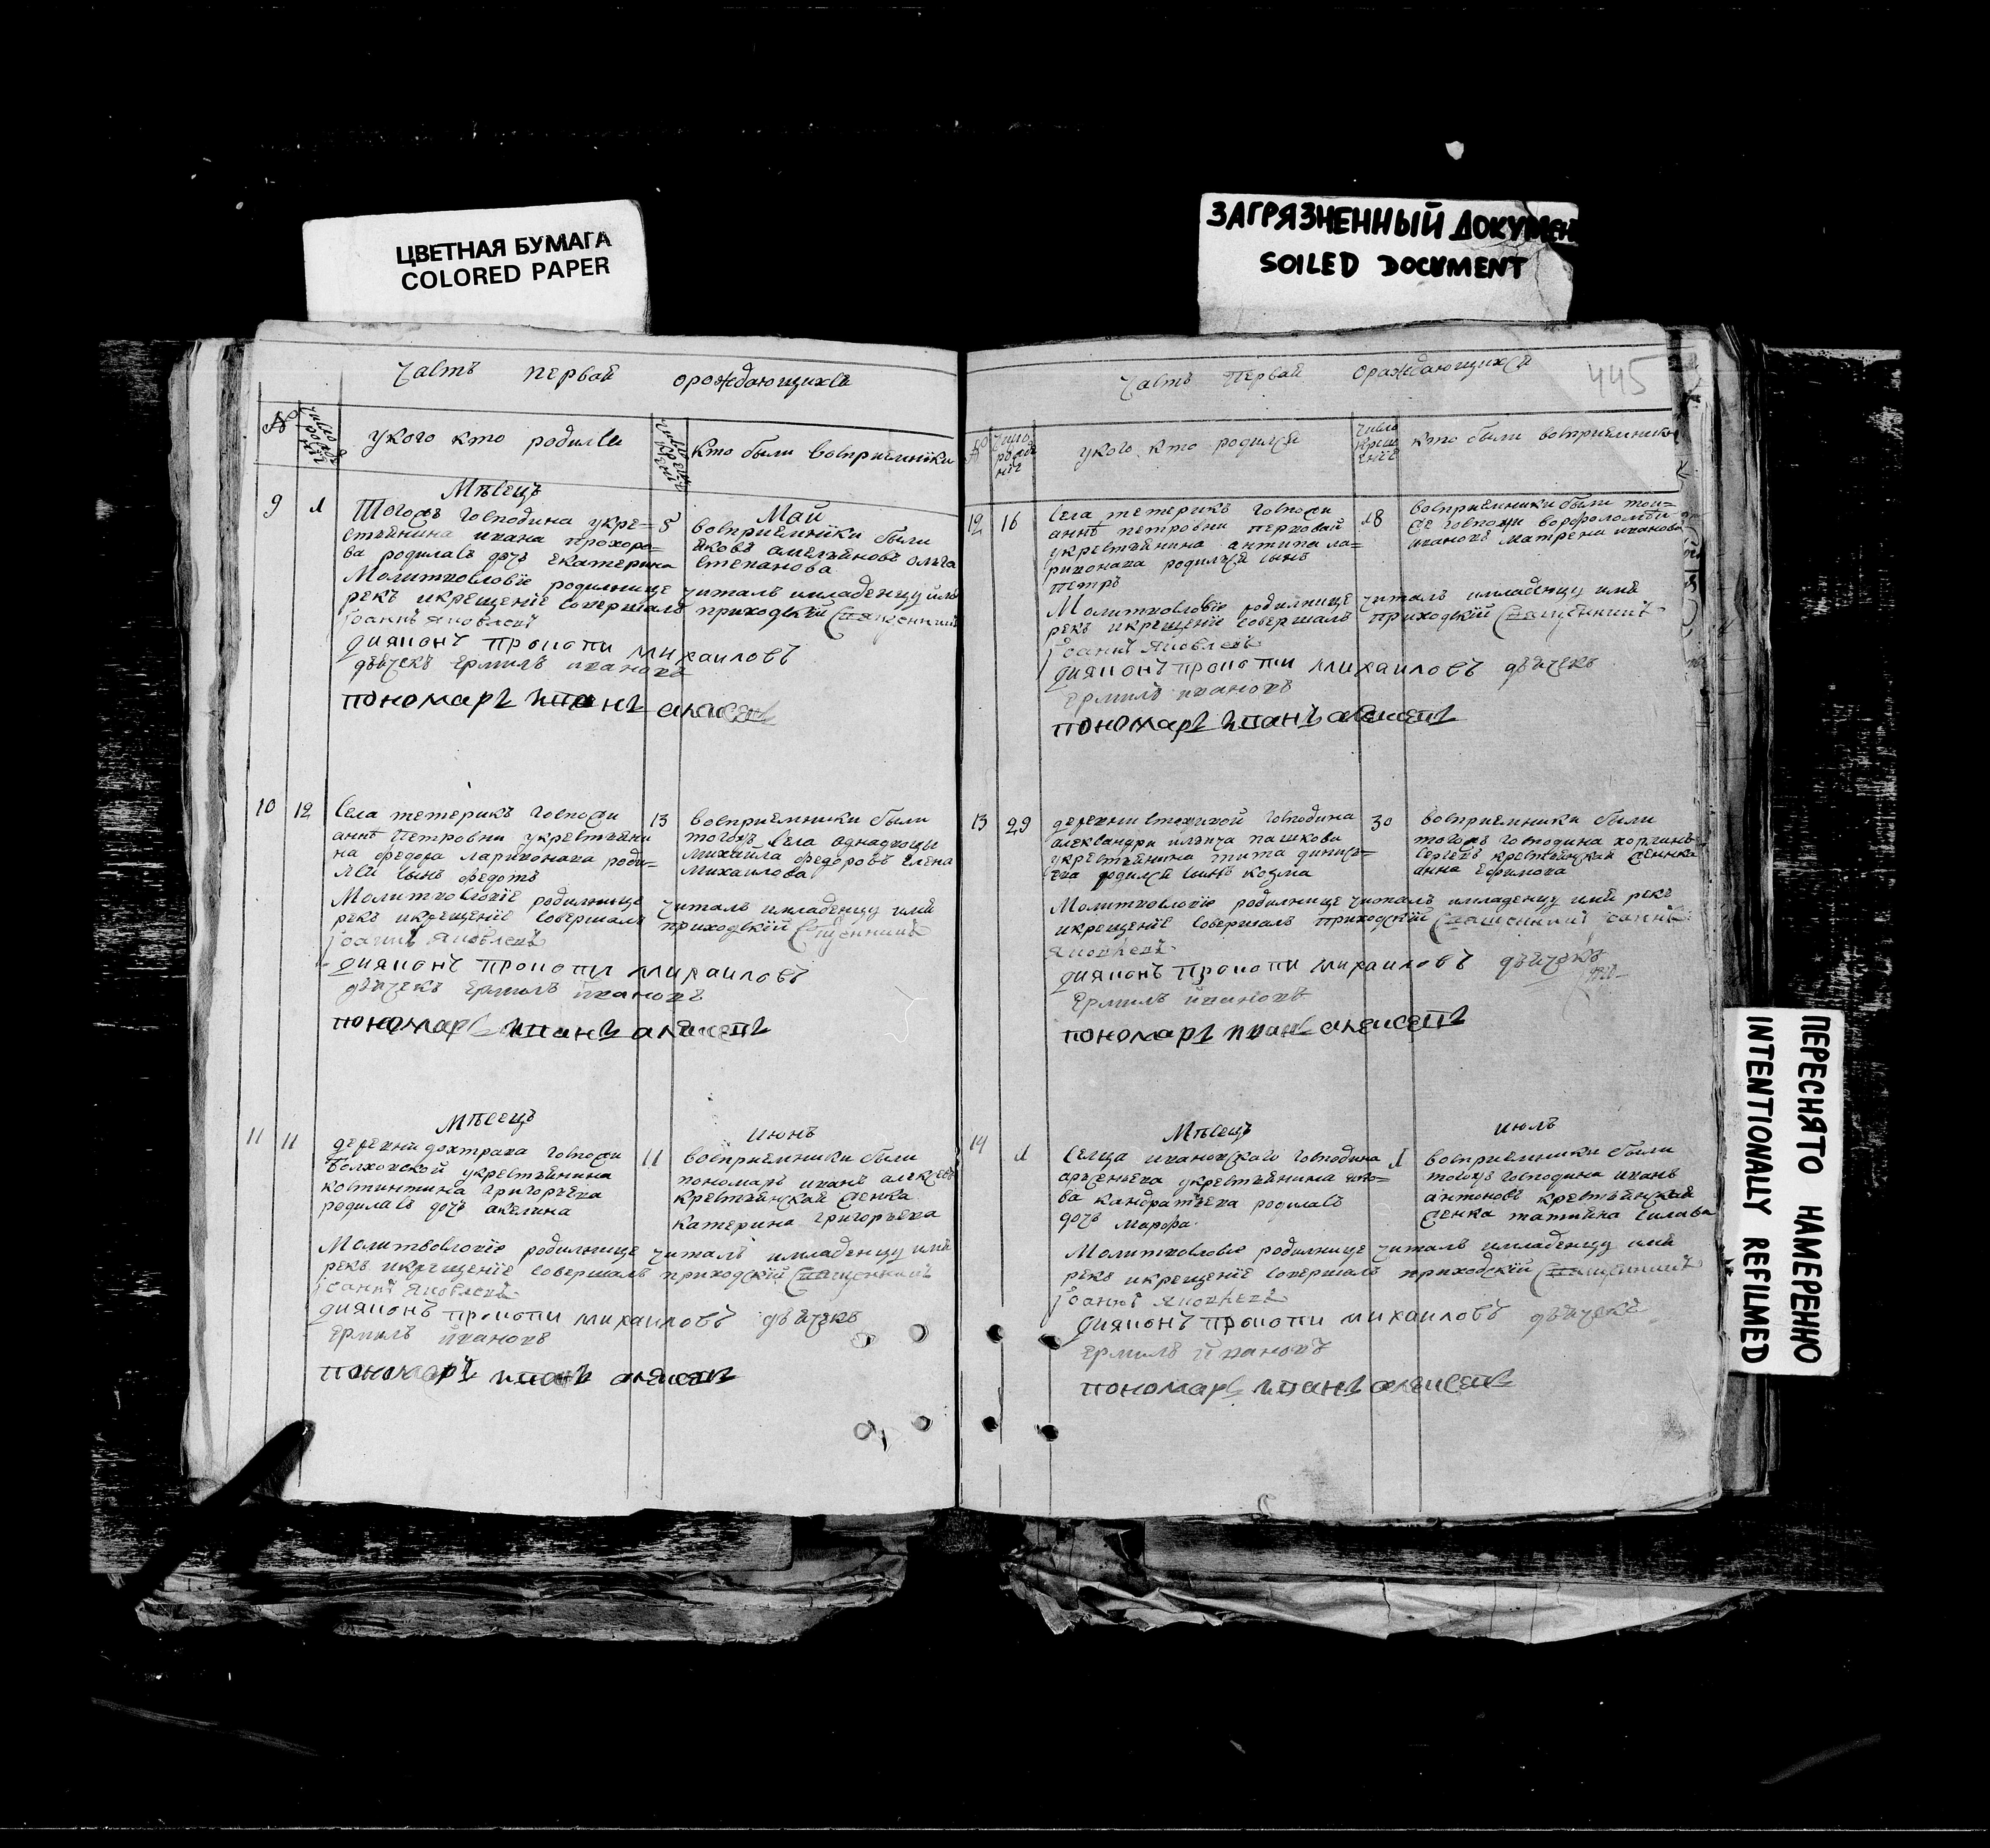 ЦВЕТНАЯ БУМАГА
COLORED PAPER
ЗАГРЯЗНЕННЫЙ ДОКУМЕН
SOILED DOCUMENT
Часть первая ораждающихся
№ укого кто родился Кто были восприемники
Мѣсецъ Май
9 1 Тогожъ господина укре=
стьянина ивана прохоро=
ва родилась дочь екатерина
5 восприемники были
яковъ амельяновъ ольга
степанова
Молитвословие родилнице читалъ имладенцу имя
рекъ икрещение совершалъ приходский священникъ
Іоаннъ Яковлевъ
дияконъ прокопи михаиловъ
дьячекъ ермилъ ивановъ
пономарь иванъ алексевъ
10 12 Села тетерикъ госпожи
аннѣ петровни укрестьяни
на федора ларивонава роди=
лся сынъ федотъ
13 восприемники были
тогожъ села аднадворцы
михайла федоровъ елена
михаилова
Молитвословие родилнице читалъ имладенцу имя
рекъ икрещение совершалъ приходский священникъ
Іоаннъ Яковлевъ
дияконъ прокопи михаиловъ
дьячекъ ермилъ ивановъ
пономарь иванъ алексевъ
Мѣсецъ июнь
11 11 деревни дохтрава госпожи
волховской укрестьянина
костинтина григорьева
родилась дочь акелина
11 восприемники были
пономарь иванъ алексевъ
крестьянская женка
катерина григорьева
Молитвословие родилнице читалъ имладенцу имя
рекъ икрещение совершалъ приходский священникъ
Іоаннъ Яковлевъ
дияконъ прокопи михаиловъ дьячекъ
ермилъ ивановъ
пономарь иванъ алексевъ
Часть первая ораждающихся 445
№ число рождение укого кто родился число крещение кто были восприемники
12 16 Села тетерикъ госпожи
аннѣ петровни перховай
укрестьянина антипа ла=
ривонава родился сынъ
петръ
18 восприемники были той=
же госпожи ворфоломѣи
ивановъ матрена иванова
Молитвословие родилнице читалъ имладенцу имя
рекъ икрещение совершалъ приходский священникъ
Іоаннъ Яковлевъ
дияконъ прокопи михаиловъ дьячекъ
ермилъ ивановъ
пономарь иванъ алексевъ
13 29 деревни господина
александра ильича пашкова
укрестьянина тита динись=
ева родился сынъ козма
30 восприемники были
тогожъ господина
сергевъ крестьянская женка
анна ефимова
Молитвословие родилнице читалъ имладенцу имя рекъ
икрещение совершалъ приходский священникъ Іоаннъ
Яковлевъ
дияконъ прокопи михаиловъ дьячекъ
ермилъ ивановъ
пономарь иванъ алексевъ
Мѣсецъ июль
14 1 Селца ивановскаго господина
арсеньева укрестьянина
ва кандратьева родилась
дочь марфа
1 восприемники были
тогожъ господина иванъ
антоновъ крестьянская
женка татьяна силава
Молитвословие родилнице читалъ имладенцу имя
рекъ икрещение совершалъ приходский священникъ
Іоаннъ Яковлевъ
дияконъ прокопи михаиловъ дьячекъ
ермилъ ивановъ
пономарь иванъ алексевъ
ПЕРЕСНЯТО НАМЕРЕННО
INTENTIONALLY REFILMED